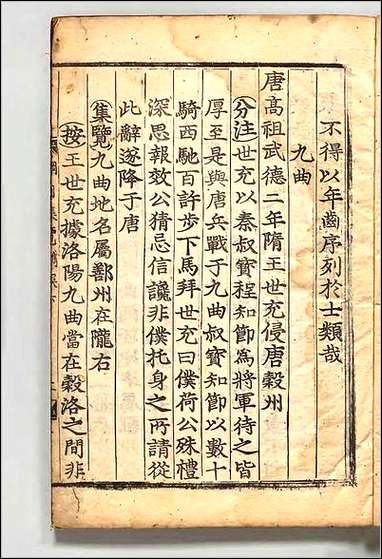 不得以年齒序列於士類哉
九曲
唐高祖武德二年隋王世充侵唐穀州
分注世充以秦叔寶程知節爲將軍待之皆
厚至是與唐兵戰于九曲叔寶知節以數十
騎西馳百許步下馬拜世充曰僕荷公殊禮
深思報效公猜忌信讒非僕托身之所請從
此辭遂降于唐
集覽九曲地名屬鄯州在隴右
按王世充據洛陽九曲當在穀洛之間非